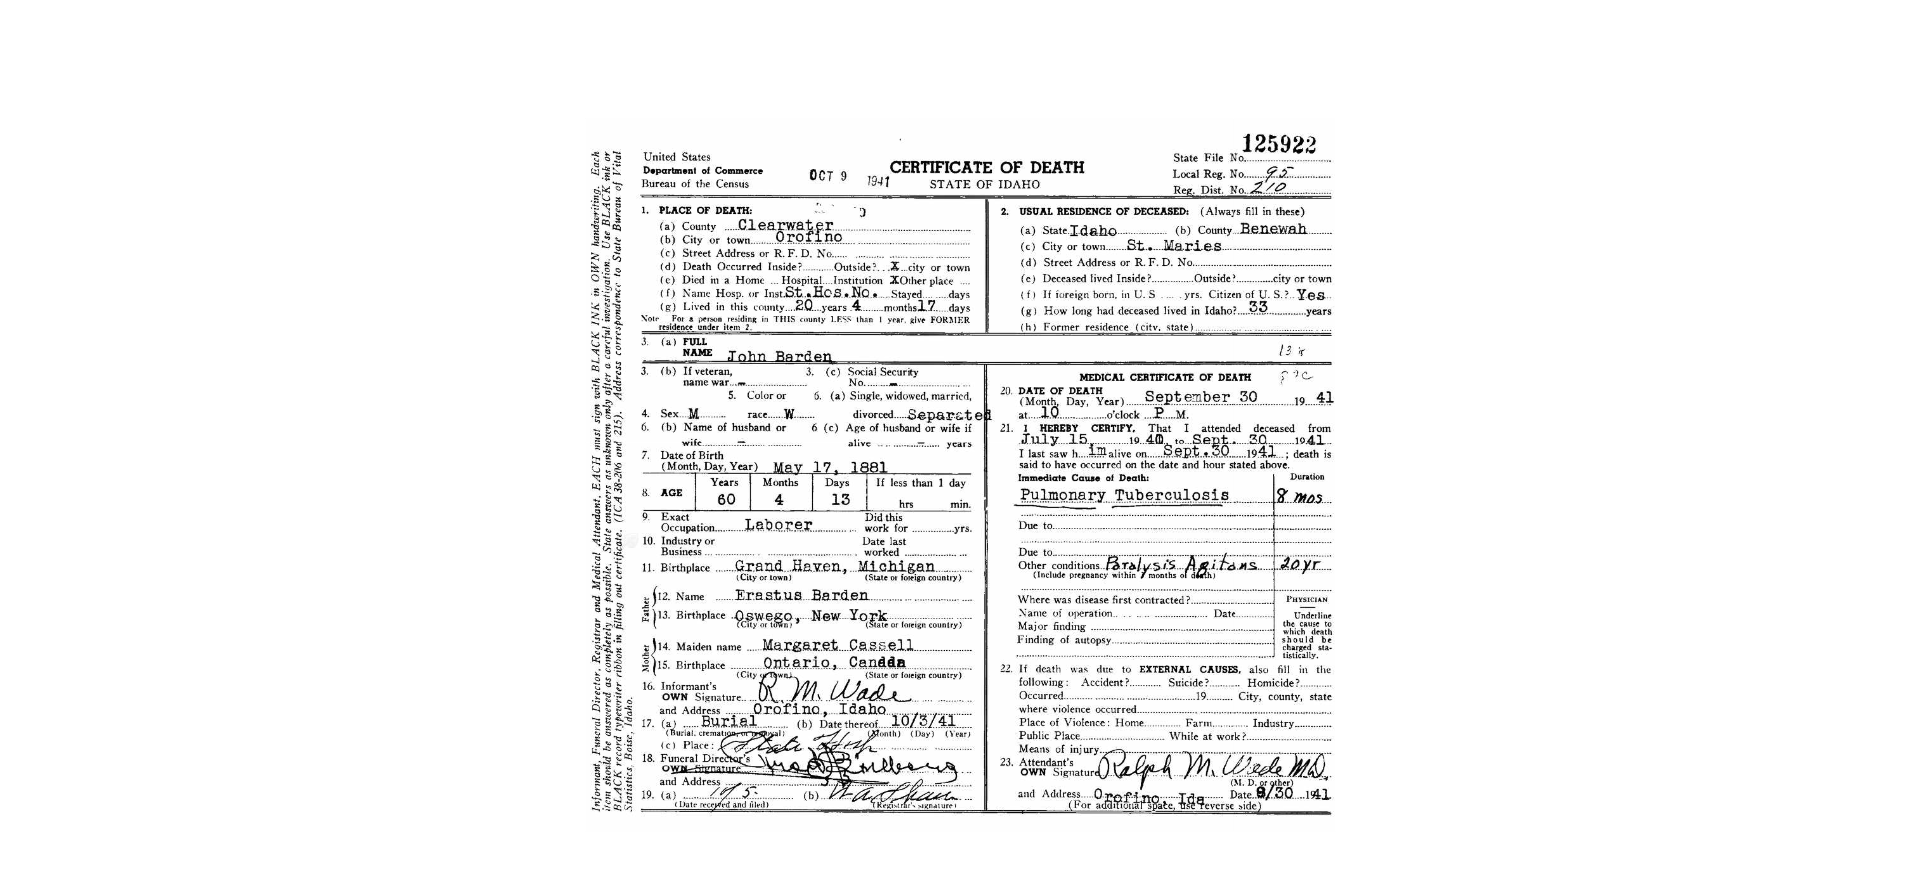 125922
United States
Department of Commerce
Bureau of the Census
OCT 9 1941
CERTIFICATE OF DEATH
STATE OF IDAHO
State File No.
Local Reg. No. 95
Reg. Dist. No. 210
Informant, Funeral Director, Registrar and Medical Attendant, EACH must sign with BLACK INK in OWN handwriting. Each
item should be answered as completely as possible. State answers as unknown only after a careful investigation. Use BLACK ink or
BLACK record typewriter ribbon in filling out certificate. (ICA 38-206 and 215). Address correspondence to State Bureau of Vital
Statistics, Boise, Idaho.
1. PLACE OF DEATH:
(a) County Clearwater
(b) City or town Orofino
(c) Street Address or R. F. D. No.
(d) Death Occurred Inside? Outside? X city or town
(e) Died in a Home Hospital Institution X Other place
(f) Name Hosp. or Inst. St.Hos.No. Stayed days
(g) Lived in this county 20 years 4 months 17 days
Note For a person residing in THIS county LESS than 1 year, give FORMER
residence under item 2.
2. USUAL RESIDENCE OF DECEASED: (Always fill in these)
(a) State Idaho (b) County Benewah
(c) City or town St. Maries
(d) Street Address or R. F. D. No.
(e) Deceased lived Inside? Outside? city or town
(f) If foreign born, in U. S yrs. Citizen of U. S.? Yes
(g) How long had deceased lived in Idaho? 33 years
(h) Former residence (city, state)
3. (a) FULL
NAME John Barden
3. (b) If veteran, 3. (c) Social Security
name war - No. -
5. Color or 6. (a) Single, widowed, married,
4. Sex M race W divorced Separated
6. (b) Name of husband or 6 (c) Age of husband or wife if
wife - alive - years
7. Date of Birth
(Month, Day, Year) May 17, 1881
8. AGE Years Months Days If less than 1 day
60 4 13 hrs min.
9. Exact Did this
Occupation Laborer work for yrs.
10. Industry or Date last
Business worked
11. Birthplace Grand Haven, Michigan
(City or town) (State or foreign country)
Father
12. Name Erastus Barden
13. Birthplace Oswego, New York
(City or town) (State or foreign country)
Mother
14. Maiden name Margaret Cassell
15. Birthplace Ontario, Canada
(City or town) (State or foreign country)
16. Informant's
OWN Signature R M. Wade
and Address Orofino, Idaho
17. (a) Burial (b) Date thereof 10/3/41
(Burial, cremation, or removal) (Month) (Day) (Year)
(c) Place: State Hosp
18. Funeral Director's
OWN Signature
and Address
19. (a) (b)
(Date received and filed) (Registrar's signature)
MEDICAL CERTIFICATE OF DEATH
20. DATE OF DEATH
(Month, Day, Year) September 30 19 41
at 10 o'clock P M.
21. I HEREBY CERTIFY, That I attended deceased from
July 15 19 40, to Sept. 30 1941
I last saw h im alive on Sept.30 1941; death is
said to have occurred on the date and hour stated above.
Immediate Cause of Death: Duration
Pulmonary Tuberculosis 8 mos
Due to
Due to
Other conditions Paralysis Agitans 20 yr
(Include pregnancy within months of death)
Where was disease first contracted?
Name of operation Date
Major finding
Finding of autopsy
PHYSICIAN
Underline
the cause to
which death
should be
charged sta-
tistically.
22. If death was due to EXTERNAL CAUSES, also fill in the
following: Accident? Suicide? Homicide?
Occurred 19 City, county, state
where violence occurred
Place of Violence: Home Farm Industry
Public Place While at work?
Means of injury
23. Attendant's
OWN Signature Ralph M. Wade MD.
(M. D. or other)
and Address Orofino Ida Date 9/30 1941
(For additional space, use reverse side)